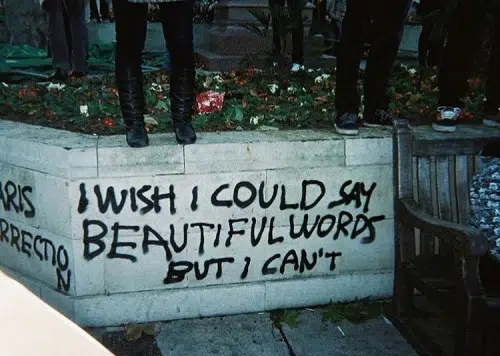 ARIS
RRECTION
I WISH I COULD SAY
BEAUTIFUL WORDS
BUT I CAN'T